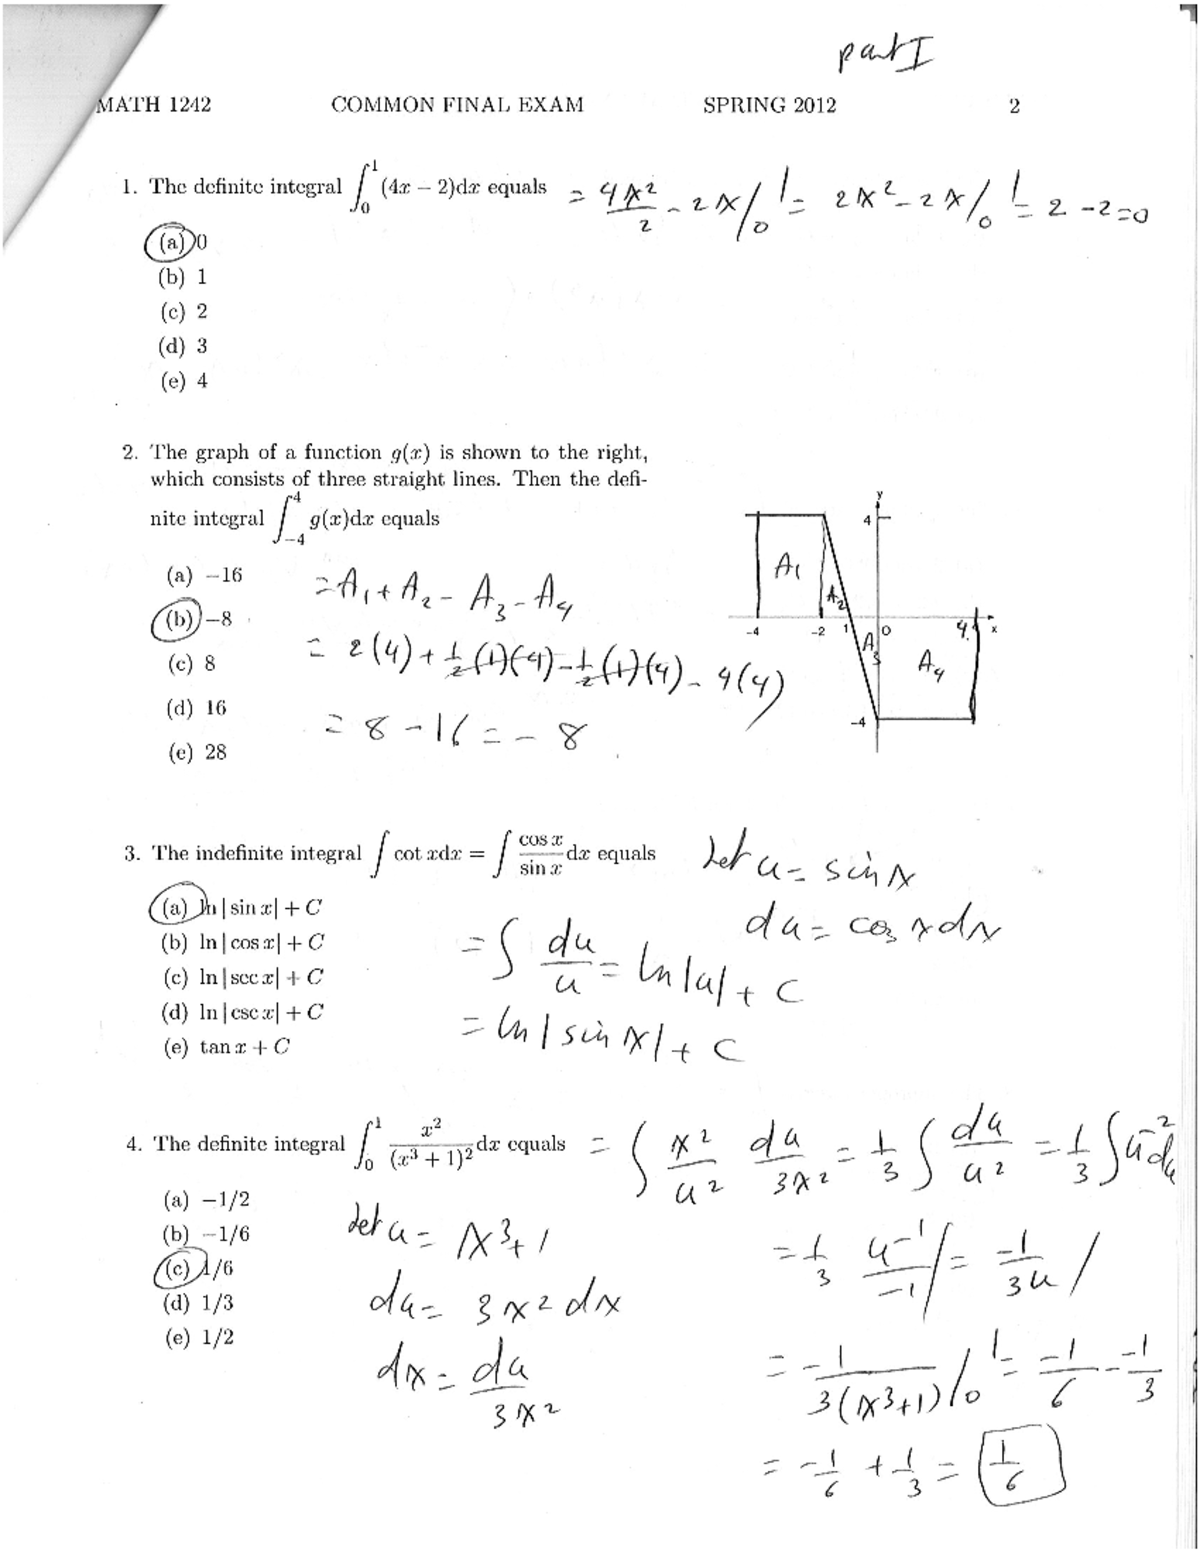 part I
MATH 1242 COMMON FINAL EXAM SPRING 2012 2
1. The definite integral ∫₀¹ (4x − 2)dx equals = 4x²/2 − 2x/₀¹ = 2x² − 2x/₀¹ = 2 − 2 = 0
(a) 0
(b) 1
(c) 2
(d) 3
(e) 4
2. The graph of a function g(x) is shown to the right,
which consists of three straight lines. Then the defi-
nite integral ∫₋₄⁴ g(x)dx equals
(a) −16
(b) −8
(c) 8
(d) 16
(e) 28
= A₁ + A₂ − A₃ − A₄
= 2(4) + ½(1)(4) − ½(1)(4) − 4(4)
= 8 − 16 = − 8
y
4
A₁
A₂
-4 -2 1 0 4 x
A₃
A₄
-4
3. The indefinite integral ∫ cot xdx = ∫ cos x/sin x dx equals
(a) ln | sin x| + C
(b) ln | cos x| + C
(c) ln | sec x| + C
(d) ln | csc x| + C
(e) tan x + C
Let u = sin x
du = cos x dx
= ∫ du/u = ln |u| + C
= ln | sin x| + C
4. The definite integral ∫₀¹ x²/(x³ + 1)² dx equals = ∫ x²/u² du/3x² = 1/3 ∫ du/u² = 1/3 ∫ u⁻² du
(a) −1/2
(b) −1/6
(c) 1/6
(d) 1/3
(e) 1/2
Let u = x³ + 1
du = 3x² dx
dx = du/3x²
= 1/3 u⁻¹/−1 / = −1/3u /
= −1/3(x³+1) /₀¹ = −1/6 − −1/3
= −1/6 + 1/3 = 1/6